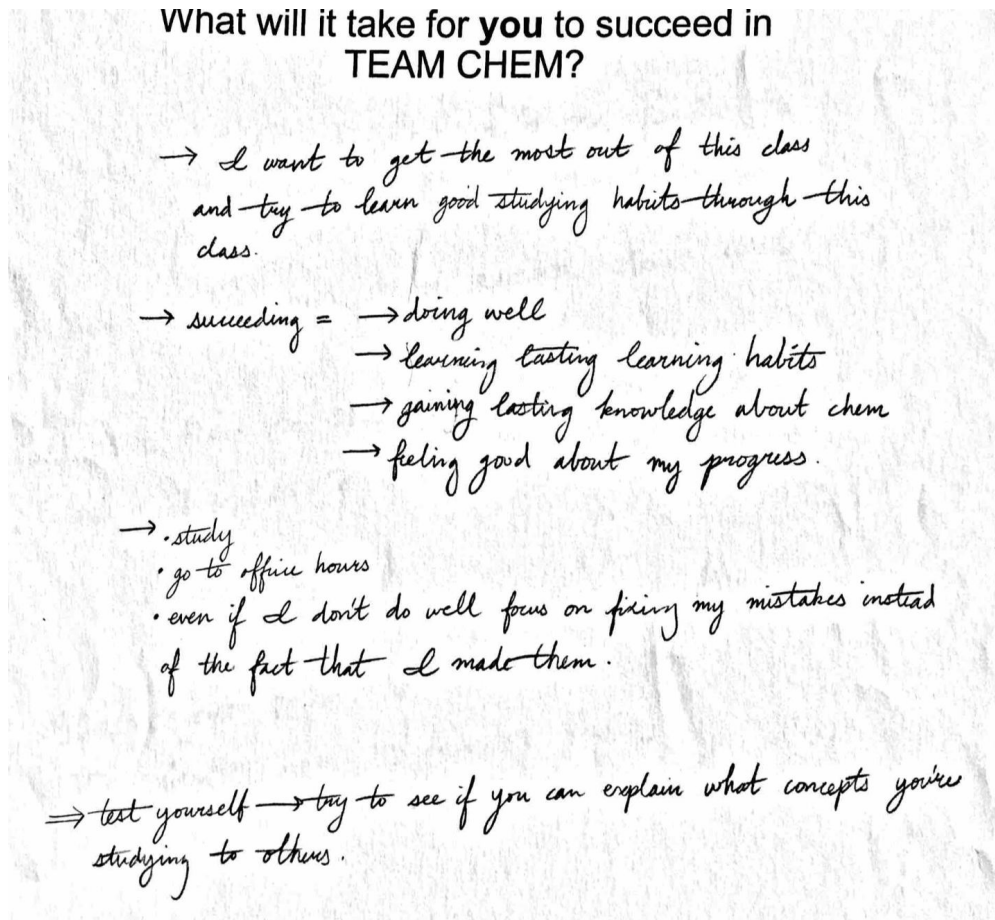 What will it take for you to succeed in
TEAM CHEM?
→ I want to get the most out of this class
and try to learn good studying habits through this
class.
→ succeeding = → doing well
→ learning lasting learning habits
→ gaining lasting knowledge about chem
→ feeling good about my progress.
→ • study
• go to office hours
• even if I don't do well focus on fixing my mistakes instead
of the fact that I made them.
⇒ test yourself → try to see if you can explain what concepts you're
studying to others.